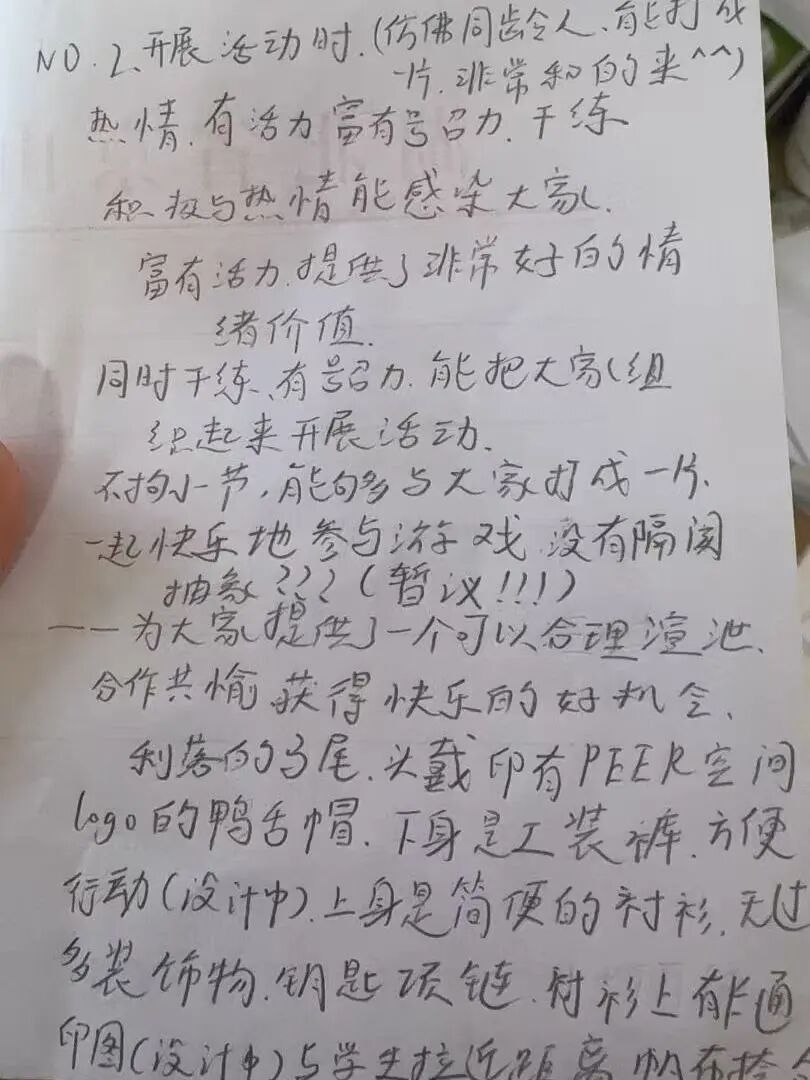 NO.2、开展活动时.(仿佛同龄人、能打成
一片.非常和的来^^)
热情.有活力富有号召力.干练
积极与热情能感染大家.
富有活力.提供了非常好的情
绪价值.
同时干练、有号召力.能把大家组
织起来开展活动.
不拘小节,能够多与大家打成一片.
一起快乐地参与游戏没有隔阂
抽象???(暂议!!!)
——为大家提供了一个可以合理渲泄、
合作共愉获得快乐的好机会、
利落的马尾.头戴印有PEER空间
logo的鸭舌帽.下身是工装裤.方便
行动(设计中).上身是简便的衬衫.无过
多装饰物.钥匙项链.衬衫上有卡通
印图(设计中)与学生拉近距离帆布